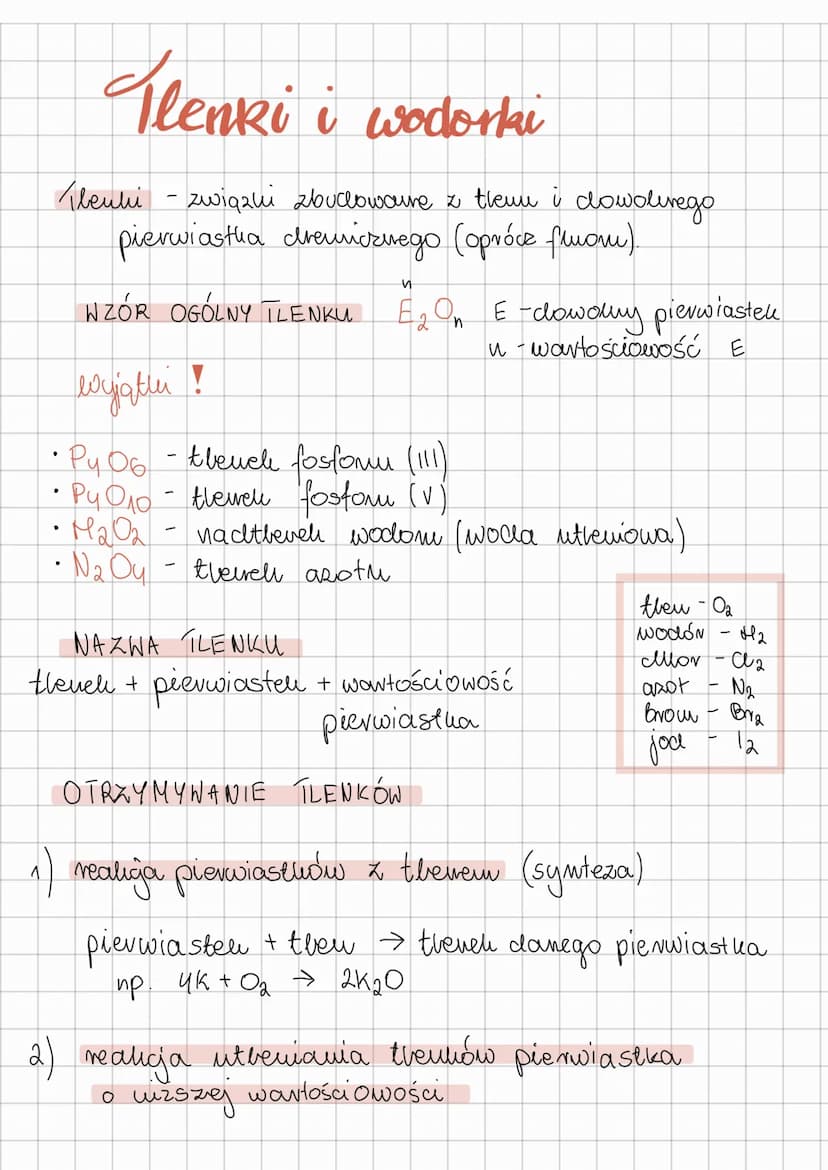 Tlenki i wodorki
Tlenki - związki zbudowane z tlenu i dowolnego
pierwiastka chemicznego (oprócz fluoru).
WZÓR OGÓLNY TLENKU
n
E₂Oₙ E - dowolny pierwiastek
n - wartościowość E
wyjątki !
• P₄O₆ - tlenek fosforu (III)
• P₄O₁₀ - tlenek fosforu (V)
• H₂O₂ - nadtlenek wodoru (woda utleniowa)
• N₂O₄ - tlenek azotu
tlen - O₂
wodór - H₂
chlor - Cl₂
azot - N₂
brom - Br₂
jod - I₂
NAZWA TLENKU
tlenek + pierwiastek + wartościowość
pierwiastka
OTRZYMYWANIE TLENKÓW
1) reakcja pierwiastków z tlenem (synteza)
pierwiastek + tlen → tlenek danego pierwiastka
np. 4K + O₂ → 2K₂O
2) reakcja utleniania tlenków pierwiastka
o niższej wartościowości